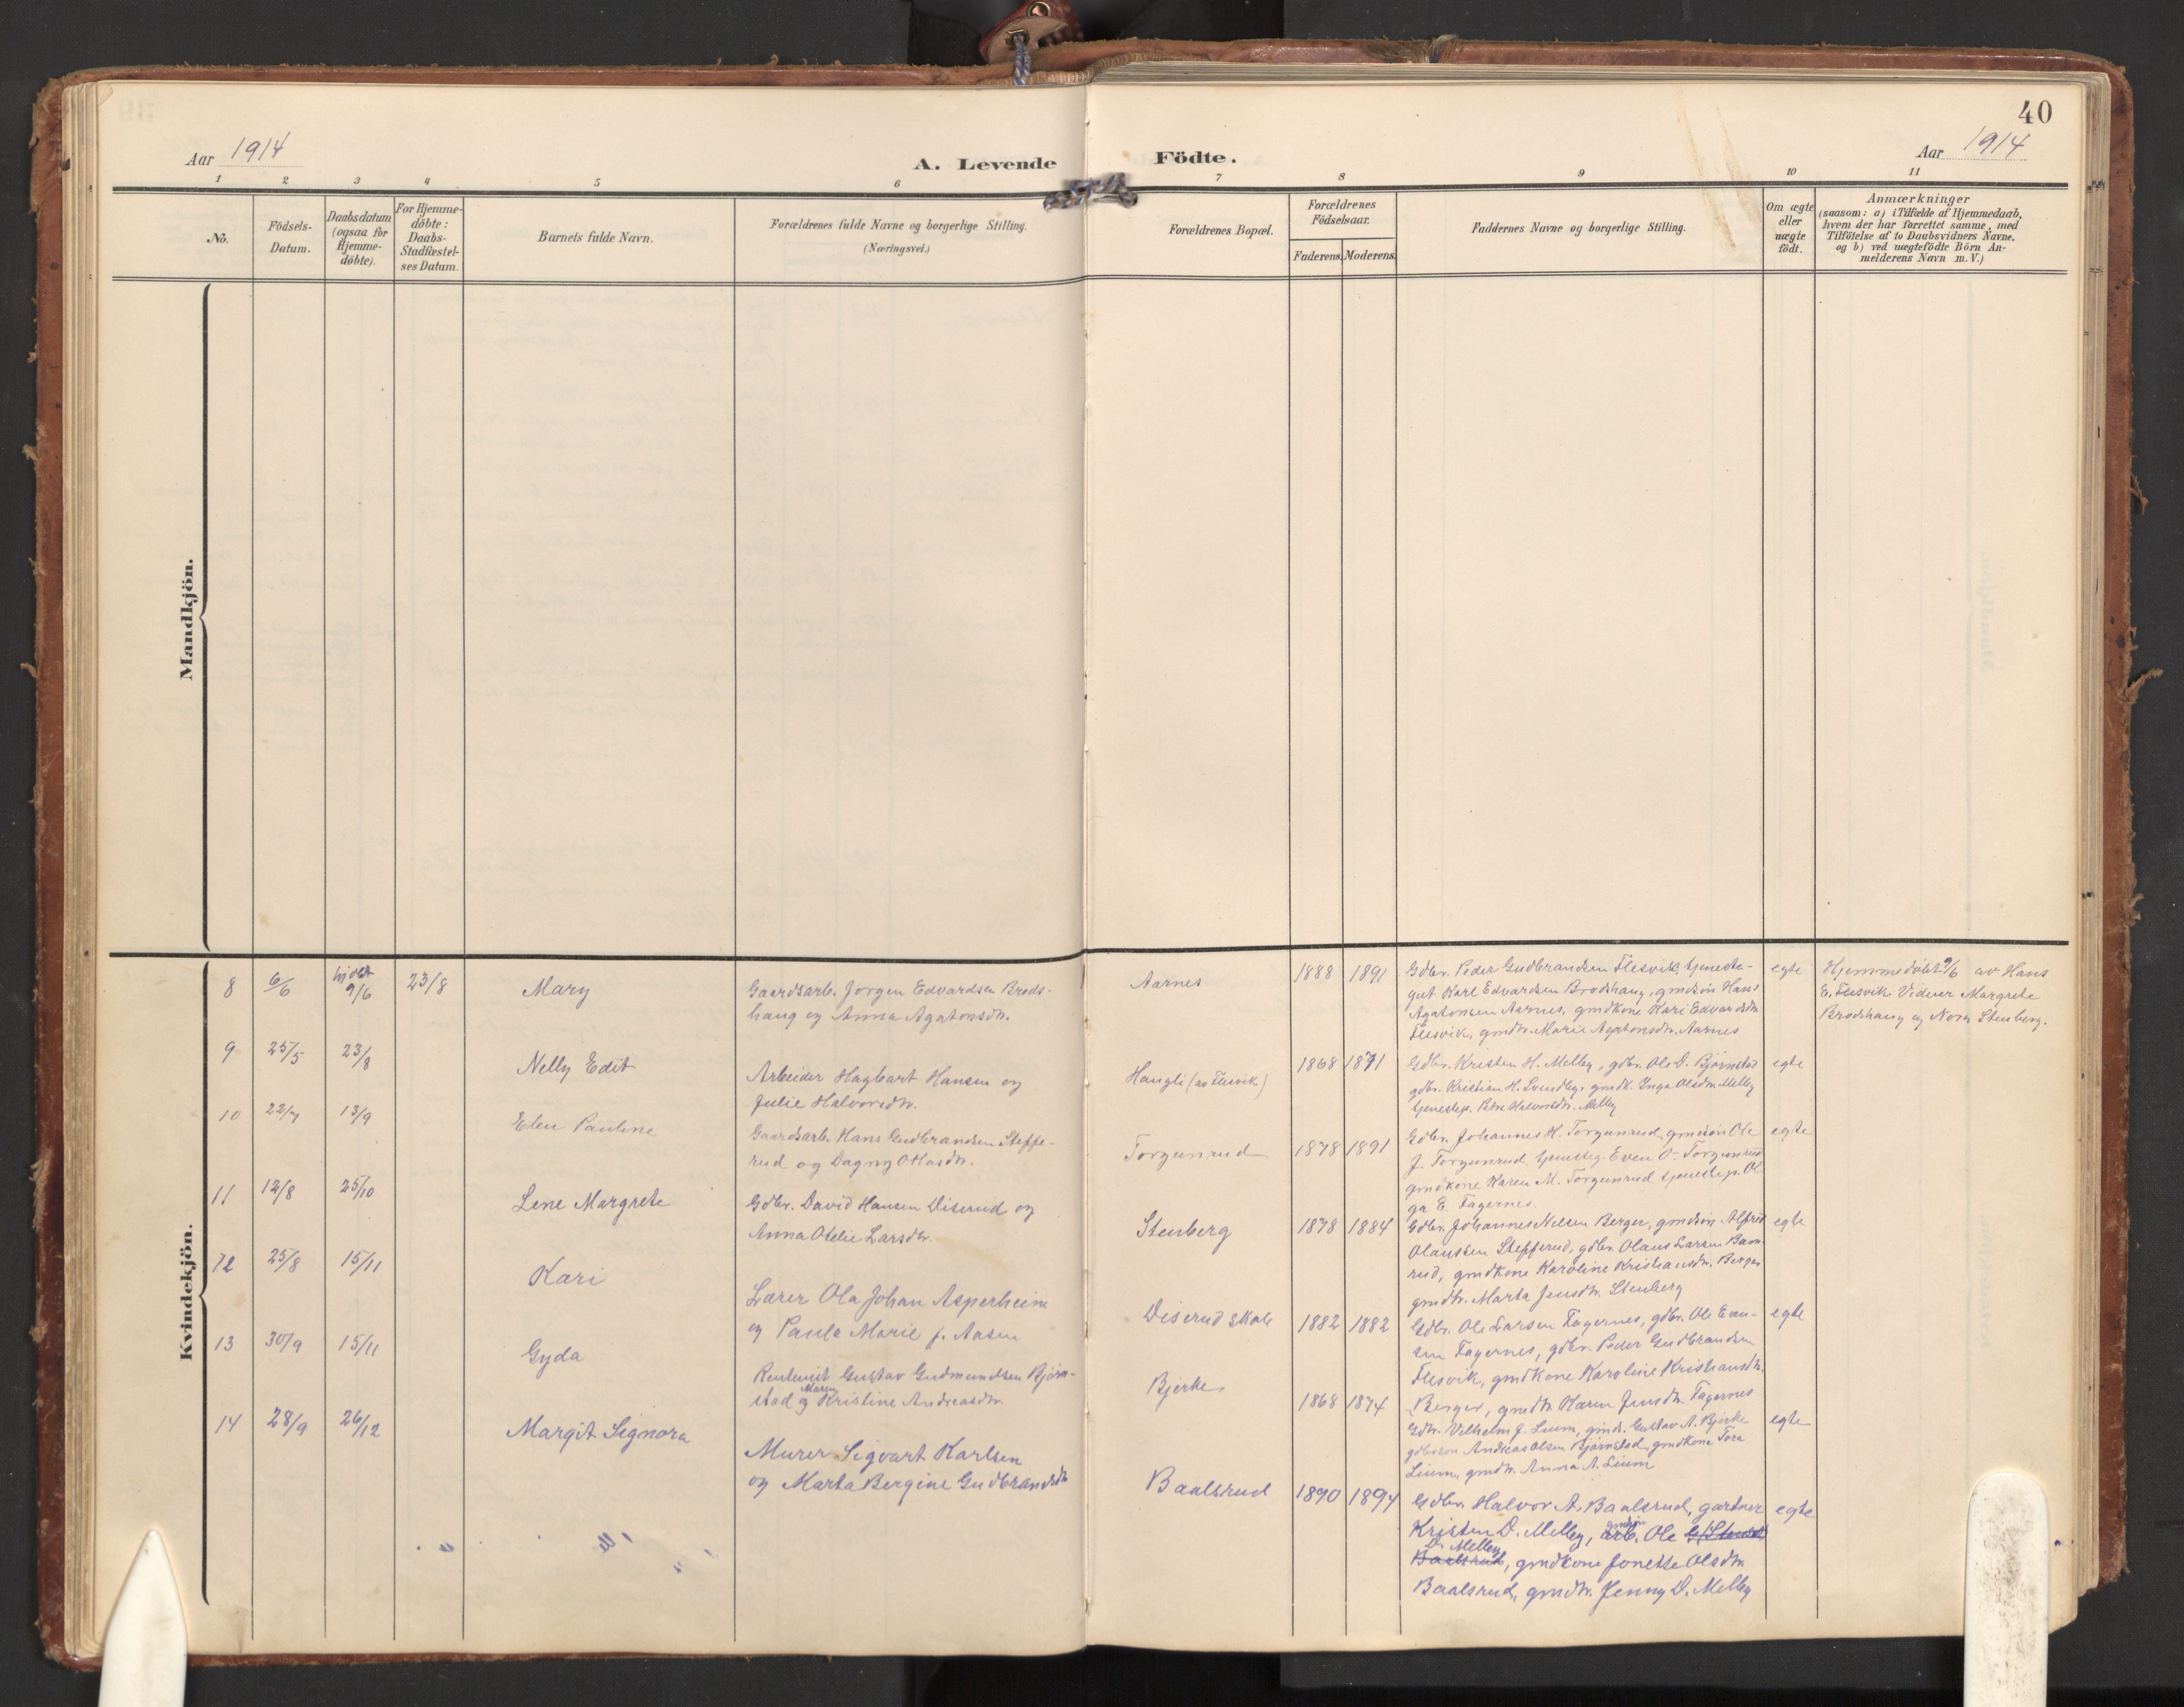 40
Aar 1914
A. Levende Födte.
Aar 1914
1 2 3 4 5 6 7 8 9 10 11
No.
Födsels-
Datum.
Daabsdatum
(ogsaa for
Hjemme-
döbte).
For Hjemme-
döbte:
Daabs-
Stadfæstel-
ses Datum.
Barnets fulde Navn.
Forældrenes fulde Navne og borgerlige Stilling.
(Næringsvei.)
Forældrenes Bopæl.
Forældrenes
Födselsaar.
Faderens. Moderens.
Faddernes Navne og borgerlige Stilling.
Om ægte
eller
uægte
födt.
Anmærkninger
(saasom: a) i Tilfælde af Hjemmedaab,
hvem der har forrettet samme, med
Tilföielse af to Daabsvidners Navne,
og b) ved uægtefödte Börn An-
melderens Navn m. V.)
Mandkjön.
Kvindekjön.
8 6/6 hj.døbt 9/6 23/8
Mary
Gaardsarb. Jørgen Edvardsen Brods-
haug og Anna Agatonsdtr.
Aarnes
1888 1891
Gdbr. Peder Gudbrandsen Flesvik, tjeneste-
gut Karl Edvardsen Brodshaug, gmdsøn Hans
Agatonsen Aarnes, gmdkone Kari Edvardsdtr.
Flesvik, gmdtr. Marie Agatonsdtr. Aarnes
egte
Hjemmedøbt 9/6 av Hans
E. Flesvik. Vidner Margrete
Brodshaug og Nora Stenberg.
9 25/5 23/8
Nelly Edit
Arbeider Hagbart Hansen og
Julie Halvorsdtr.
Haugli (av Flesvik)
1868 1871
Gdbr. Kristen H. Melby, gdbr. Ole D. Bjørnstad
gdbr. Kristian H. Svendby, gmdk. Inga Olsdtr. Melby
tjenestep. Petra Halvorsdtr. Melby
egte
10 22/7 13/9
Elen Pauline
Gaardsarb. Hans Gudbrandsen Steffe-
rud og Dagny Ottosdtr.
Torgunrud
1878 1891
Gdbr. Johannes H. Torgunrud, gmdsøn Ole
J. Torgunrud, tjenesteg. Even O. Torgunrud
gmdkone Karen M. Torgunrud tjenestep. Ol
ga E. Fagernes.
egte
11 12/8 25/10
Lene Margrete
Gdbr. David Hansen Diserud og
Anna Otelie Larsdtr.
Stenberg
1878 1884
Gdbr. Johannes Nelsen Berger, gmdsøn Alfred
Olaussen Stefferud, gdbr. Olaus Larsen Bam-
rud, gmdkone Karoline Kristiansdtr. Berger
gmdtr. Marta Jensdtr. Stenberg
egte
12 25/8 15/11
Kari
Lærer Ola Johan Asperheim
og Paula Marie f. Aasen
Diserud skole
1882 1882
Gdbr. Ole Larsen Fagernes, gdbr. Ole Evan-
sen Fagernes, gdbr. Peder Gudbrandsen
Flesvik, gmdkone Karoline Kristiansdtr.
Berger, gmdtr. Karen Jensdtr. Fagernes
egte
13 30/9 15/11
Gyda
Rentenist Gustav Gudmundsen Bjørn-
stad og Maren Kristine Andreasdtr.
Bjerke
1868 1874
Gdbr. Vilhelm J. Lium, gmds. Gustav A. Bjerke
gdbrsøn Andreas Olsen Bjørnstad, gmdkone Tora
Lium, gmdtr. Anna A. Lium
egte
14 28/9 26/12
Margit Signora
Murer Sigvart Karlsen
og Marta Bergine Gudbrandsdtr
Baalsrud
1890 1894
Gdbr. Halvor A. Baalsrud, gartner
Kristen D. Melby, arb. gmdsøn Ole
D. Melby
Baalsrud, gmdkone Jonette Olsdtr.
Baalsrud, gmdtr. Jenny D. Melby
egte